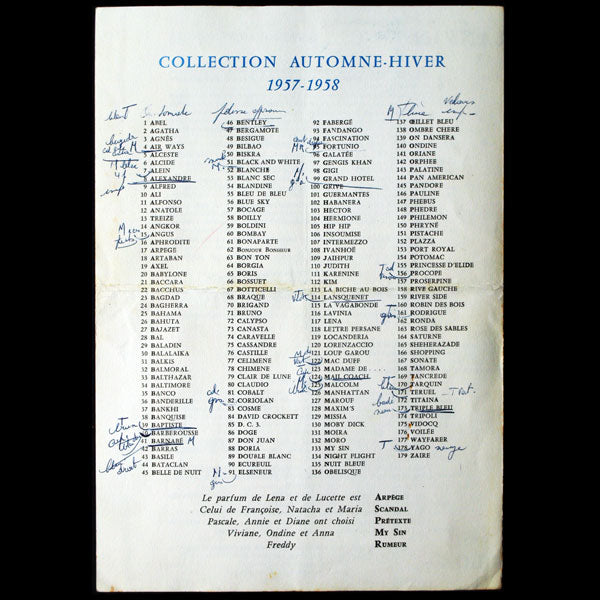 COLLECTION AUTOMNE-HIVER
1957-1958
1 ABEL
2 AGATHA
3 AGNÈS
4 AIR WAYS
5 ALCESTE
6 ALCIDE
7 ALEIN
8 ALEXANDRE
9 ALFRED
10 ALI
11 ALFONSO
12 ANATOLE
13 TREIZE
14 ANGKOR
15 ANGUS
16 APHRODITE
17 ARPEGE
18 ARTABAN
19 AXEL
20 BABYLONE
21 BACCARA
22 BACCHUS
23 BAGDAD
24 BAGHERRA
25 BAHAMA
26 BAHUTA
27 BAJAZET
28 BAL
29 BALADIN
30 BALALAIKA
31 BALKIS
32 BALMORAL
33 BALTHAZAR
34 BALTIMORE
35 BANCO
36 BANDERILLE
37 BANKHI
38 BANQUISE
39 BAPTISTE
40 BARBEROUSSE
41 BARNABÉ
42 BARRAS
43 BASILE
44 BATACLAN
45 BELLE DE NUIT
46 BENTLEY
47 BERGAMOTE
48 BESIGUE
49 BILBAO
50 BISKRA
51 BLACK AND WHITE
52 BLANCHE
53 BLANC SEC
54 BLANDINE
55 BLEU DE BLEU
56 BLUE SKY
57 BOCAGE
58 BOILLY
59 BOLDINI
60 BOMBAY
61 BONAPARTE
62 BONJOUR BONHEUR
63 BON TON
64 BORGIA
65 BORIS
66 BOSSUET
67 BOTTICELLI
68 BRAQUE
70 BRIGAND
71 BRUNO
72 CALYPSO
73 CANASTA
74 CARAVELLE
75 CASSANDRE
76 CASTILLE
77 CELIMENE
78 CHIMENE
79 CLAIR DE LUNE
80 CLAUDIO
81 COBALT
82 CORIOLAN
83 COSME
84 DAVID CROCKETT
85 D. C. 3
86 DOGE
87 DON JUAN
88 DORIA
89 DOUBLE BLANC
90 ECUREUIL
91 ELSENEUR
92 FABERGÉ
93 FANDANGO
94 FASCINATION
95 FORTUNIO
96 GALATÉE
97 GENGIS KHAN
98 GIGI
99 GRAND HOTEL
100 GRIVE
101 GUERMANTES
102 HABANERA
103 HECTOR
104 HERMIONE
105 HIP HIP
106 INSOUMISE
107 INTERMEZZO
108 IVANHOË
109 JAIHPUR
110 JUDITH
111 KARENINE
112 KIM
113 LA BICHE AU BOIS
114 LANSQUENET
115 LA VAGABONDE
116 LAVINIA
117 LENA
118 LETTRE PERSANE
119 LOCANDERIA
120 LORENZACCIO
121 LOUP GAROU
122 MAC DUFF
123 MADAME DE ....
124 MAIL COACH
125 MALCOLM
126 MANHATTAN
127 MAROUF
128 MAXIM'S
129 MISSIA
130 MOBY DICK
131 MOIRA
132 MORO
133 MY SIN
134 NIGHT FLIGHT
135 NUIT BLEUE
136 OBELISQUE
137 ŒILLET BLEU
138 OMBRE CHERE
139 ON DANSERA
140 ONDINE
141 ORIANE
142 ORPHEE
143 PALATINE
144 PAN AMERICAN
145 PANDORE
146 PAULINE
147 PHEBUS
148 PHEDRE
149 PHILEMON
150 PHRYNÉ
151 PISTACHE
152 PLAZZA
153 PORT ROYAL
154 POTOMAC
155 PRINCESSE D'ELIDE
156 PROCOPE
157 PROSERPINE
158 RIVE GAUCHE
159 RIVER SIDE
160 ROBIN DES BOIS
161 RODRIGUE
162 RONDA
163 ROSE DES SABLES
164 SATURNE
165 SHEHERAZADE
166 SHOPPING
167 SONATE
168 TAMORA
169 TANCREDE
170 TARQUIN
171 TERUEL
172 TITAINA
173 TRIPLE BLEU
174 TRIPOLI
175 VIDOCQ
176 VOILÉE
177 WAYFARER
178 YAGO rouge
179 ZAIRE
Le parfum de Lena et de Lucette est ARPÈGE
Celui de Françoise, Natacha et Maria SCANDAL
Pascale, Annie et Diane ont choisi PRÉTEXTE
Viviane, Ondine et Anna MY SIN
Freddy RUMEUR